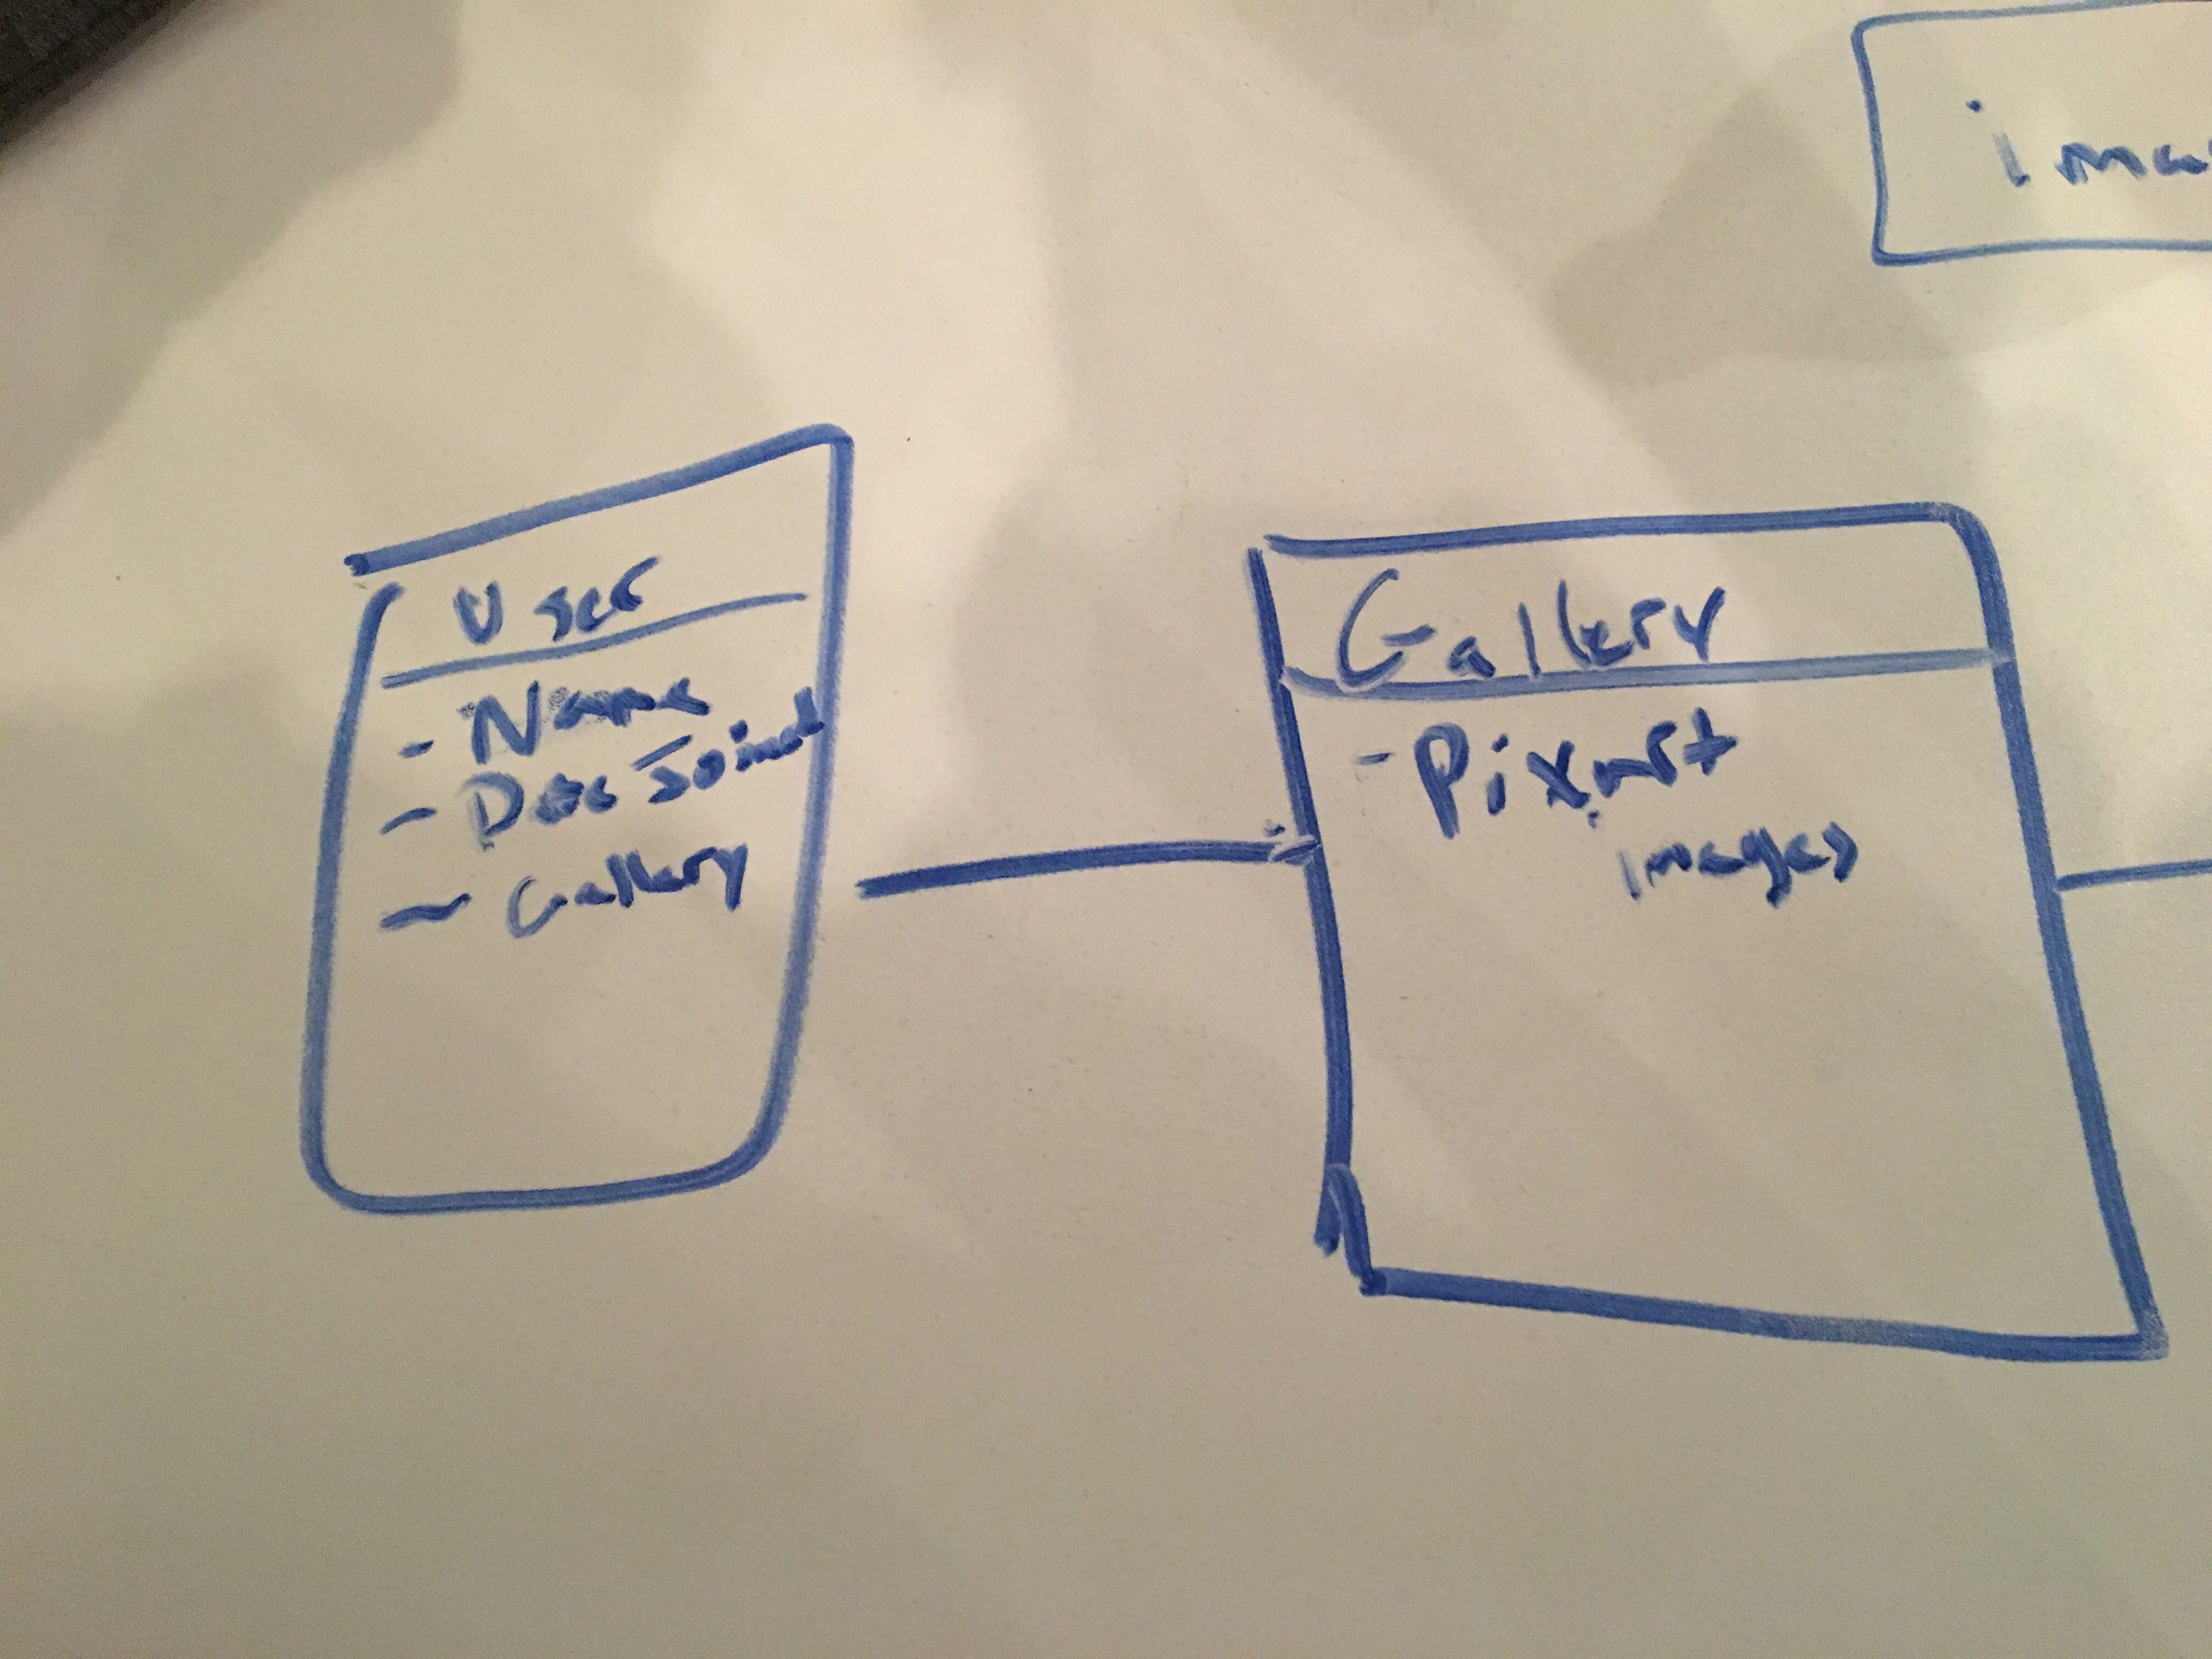 ima
User
- Name
- Date Joined
- Gallery
Gallery
- Pixart
images